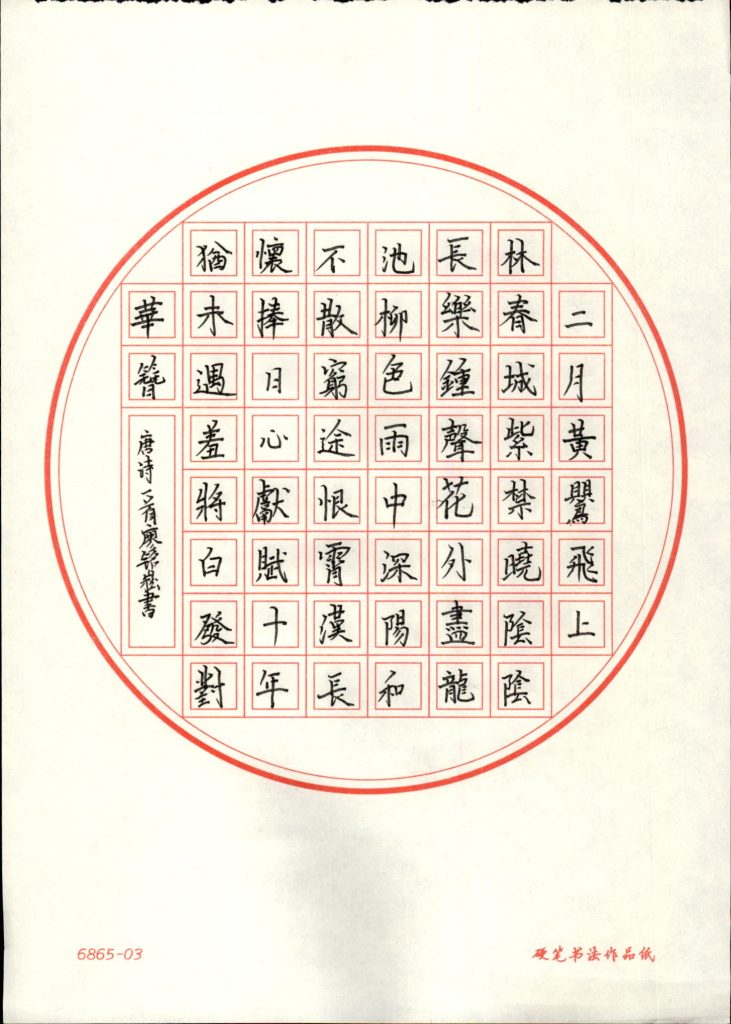 二月黃鸎飛上
林春城紫禁曉陰陰
長樂鍾聲花外盡龍
池柳色雨中深陽和
不散窮途恨霄漢長
懷捧日心獻賦十年
猶未遇羞將白發對
華簪
唐诗一首書
6865-03
硬笔书法作品纸